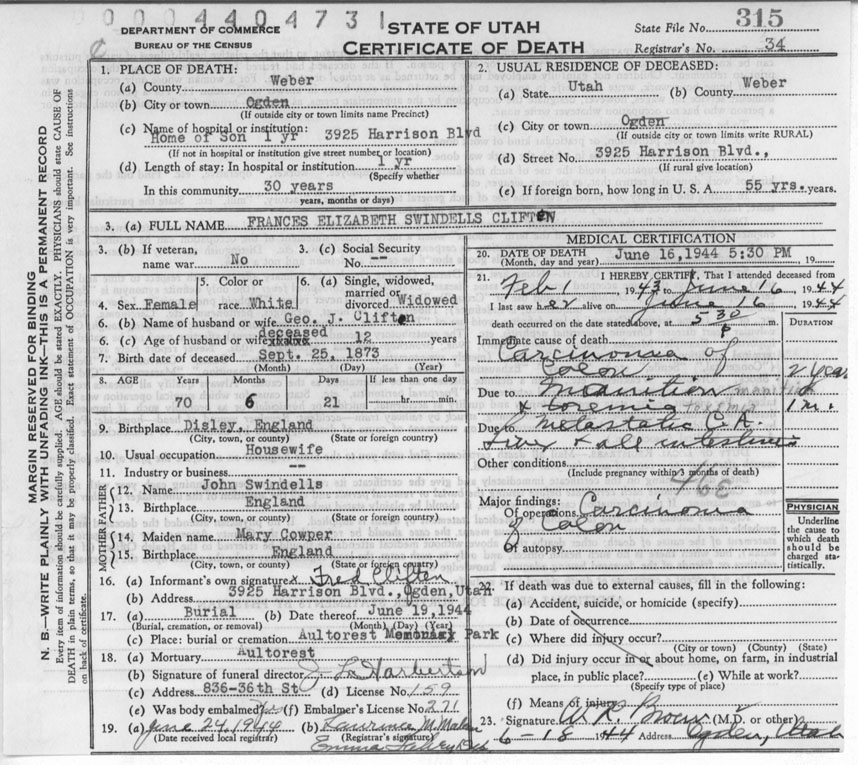 0004404731
DEPARTMENT OF COMMERCE
BUREAU OF THE CENSUS
STATE OF UTAH
CERTIFICATE OF DEATH
State File No. 315
Registrar's No. 34
MARGIN RESERVED FOR BINDING
N. B.—WRITE PLAINLY WITH UNFADING INK—THIS IS A PERMANENT RECORD
Every item of information should be carefully supplied. AGE should be stated EXACTLY. PHYSICIANS should state CAUSE OF
DEATH in plain terms, so that it may be properly classified. Exact statement of OCCUPATION is very important. See instructions
on back of certificate.
1. PLACE OF DEATH:
(a) County Weber
(b) City or town Ogden
(If outside city or town limits name Precinct)
(c) Name of hospital or institution:
Home of Son 1 yr 3925 Harrison Blvd
(If not in hospital or institution give street number or location)
(d) Length of stay: In hospital or institution 1 yr
(Specify whether
In this community 30 years
years, months or days)
2. USUAL RESIDENCE OF DECEASED:
(a) State Utah (b) County Weber
(c) City or town Ogden
(If outside city or town limits write RURAL)
(d) Street No. 3925 Harrison Blvd.,
(If rural give location)
(e) If foreign born, how long in U. S. A. 55 yrs. years.
3. (a) FULL NAME FRANCES ELIZABETH SWINDELLS CLIFTEN
3. (b) If veteran, name war No
3. (c) Social Security No. --
4. Sex Female
5. Color or race White
6. (a) Single, widowed, married or divorced Widowed
6. (b) Name of husband or wife Geo. J. Cliften
deceased
6. (c) Age of husband or wife 12 years
7. Birth date of deceased Sept. 25, 1873
(Month) (Day) (Year)
8. AGE Years Months Days If less than one day
70 6 21 hr. min.
9. Birthplace Disley, England
(City, town, or county) (State or foreign country)
10. Usual occupation Housewife
11. Industry or business --
FATHER
12. Name John Swindells
13. Birthplace England
(City, town, or county) (State or foreign country)
MOTHER
14. Maiden name Mary Cowper
15. Birthplace England
(City, town, or county) (State or foreign country)
16. (a) Informant's own signature x Fred Cliften
(b) Address 3925 Harrison Blvd., Ogden, Utah
17. (a) Burial (b) Date thereof June 19, 1944
(Burial, cremation, or removal) (Month) (Day) (Year)
(c) Place: burial or cremation Aultorest Memorial Park
18. (a) Mortuary Aultorest
(b) Signature of funeral director
(c) Address 836-36th St (d) License No. 159
(e) Was body embalmed yes (f) Embalmer's License No. 271
19. (a) June 24, 1944 (b) Laurence M. Malan
(Date received local registrar) (Registrar's signature)
Emma
MEDICAL CERTIFICATION
20. DATE OF DEATH June 16, 1944 5:30 PM 19
(Month, day and year)
21. I HEREBY CERTIFY, That I attended deceased from
Feb 1 1943 to June 16 1944
I last saw her alive on June 16 1944
death occurred on the date stated above, at 5 30 P
DURATION
Immediate cause of death
Carcinomaa of
Colon 2 year
Due to Inanition inanition
& toxemia toxemia 1 m.
Due to Metastatic C.A.
Liver & all intestines
Other conditions
(Include pregnancy within 3 months of death)
46E
Major findings:
Of operations Carcinoma
of Colon
Of autopsy
PHYSICIAN
Underline
the cause to
which death
should be
charged sta-
tistically.
22. If death was due to external causes, fill in the following:
(a) Accident, suicide, or homicide (specify)
(b) Date of occurrence
(c) Where did injury occur?
(City or town) (County) (State)
(d) Did injury occur in or about home, on farm, in industrial
place, in public place? (e) While at work?
(Specify type of place)
(f) Means of injury
23. Signature W. R. Brown (M.D. or other)
6-18 1944 Address Ogden, Utah